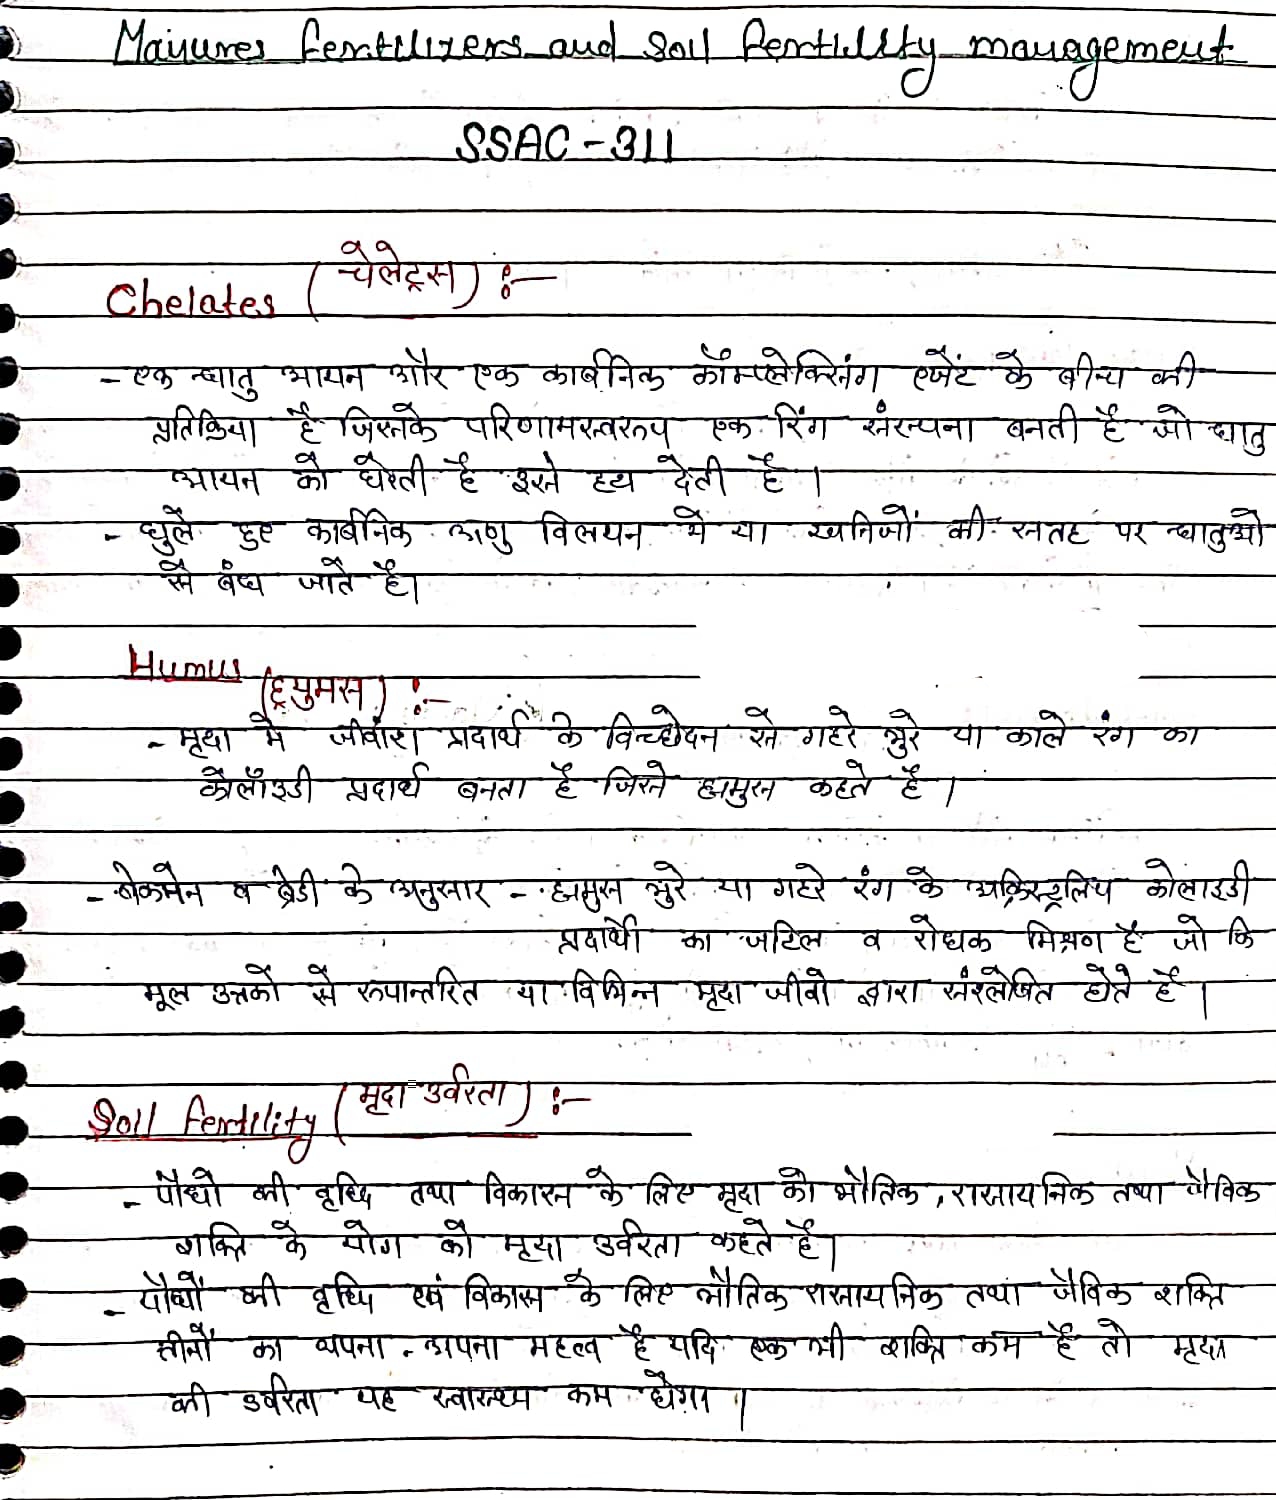 Manures fertilizers and soil fertility management
SSAC-311
Chelates (चेलेट्स) :-
- एक धातु आयन और एक कार्बनिक कॉम्प्लेक्सिंग एजेंट के बीच की
प्रतिक्रिया है जिसके परिणामस्वरूप एक रिंग संरचना बनती है जो धातु
आयन को घेरती है इसे हय देती है ।
- घुले हुए कार्बनिक अणु विलयन मे या खनिजों की सतह पर धातुओ
से बंध जाते है।
Humus (ह्युमस) :-
- मृदा मे जीवांश प्रदार्थ के विच्छेदन से गहरे भुरे या काले रंग का
कोलॉइडी प्रदार्थ बनता है जिसे ह्यमुस कहते है ।
- बेकमेन व ब्रेडी के अनुसार - ह्यमुस भुरे या गहरे रंग के अक्रिस्ट्रलिय कोलाइडी
प्रदार्थो का जटिल व रोधक मिश्रण है जो कि
मूल उत्तको से रूपान्तरित या विभिन्न मृदा जीवो द्वारा संश्लेषित होते है ।
Soil fertility (मृदा उर्वरता) :-
- पौधो की वृध्दि तथा विकास के लिए मृदा को भौतिक, रासायनिक तथा जैविक
शक्ति के योग को मृदा उर्वरता कहते है।
- पौधों की वृध्दि एवं विकास के लिए भौतिक रासायनिक तथा जैविक शक्ति
तीनों का अपना - अपना महत्व है यदि एक भी शक्ति कम है तो मृदा
की उर्वरता यह स्वास्थ्य कम होगा ।